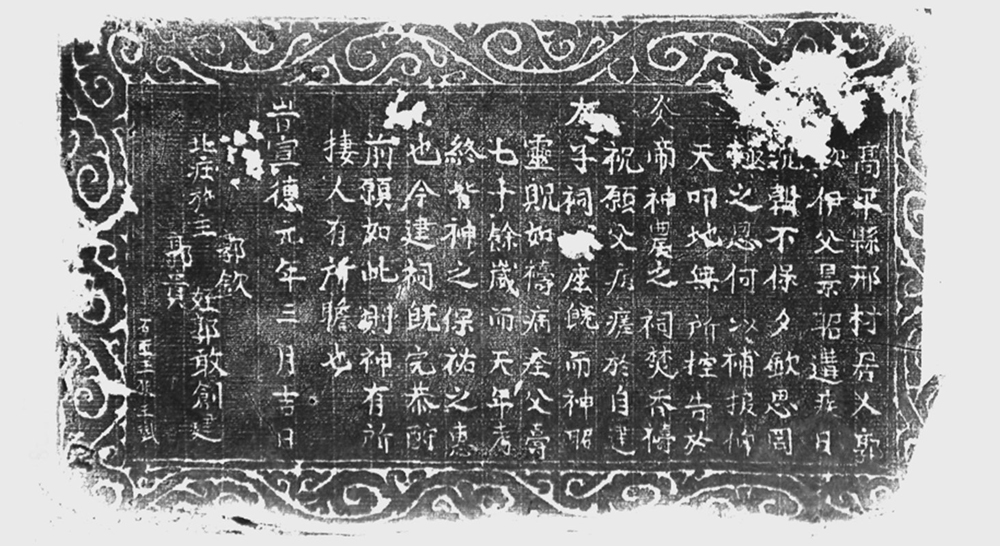 高平縣邢村居人郭
欽伊父景昭遘疾日
沉㱿不保夕欽思罔
極之恩何以補報仰
天叩地無所控告於
炎帝神農之祠焚香禱
祝願父病瘥於自建
太子祠 座既而神昭
靈貺如禱病痊父壽
七十餘歲而天年考
終皆神之保祐之惠
也今建祠既完恭酧
前願如此則神有所
捿人有所瞻也
旹宣德元年三月吉日
郭欽
北庄施主 姪郭敢創建
郭貴
石匠王